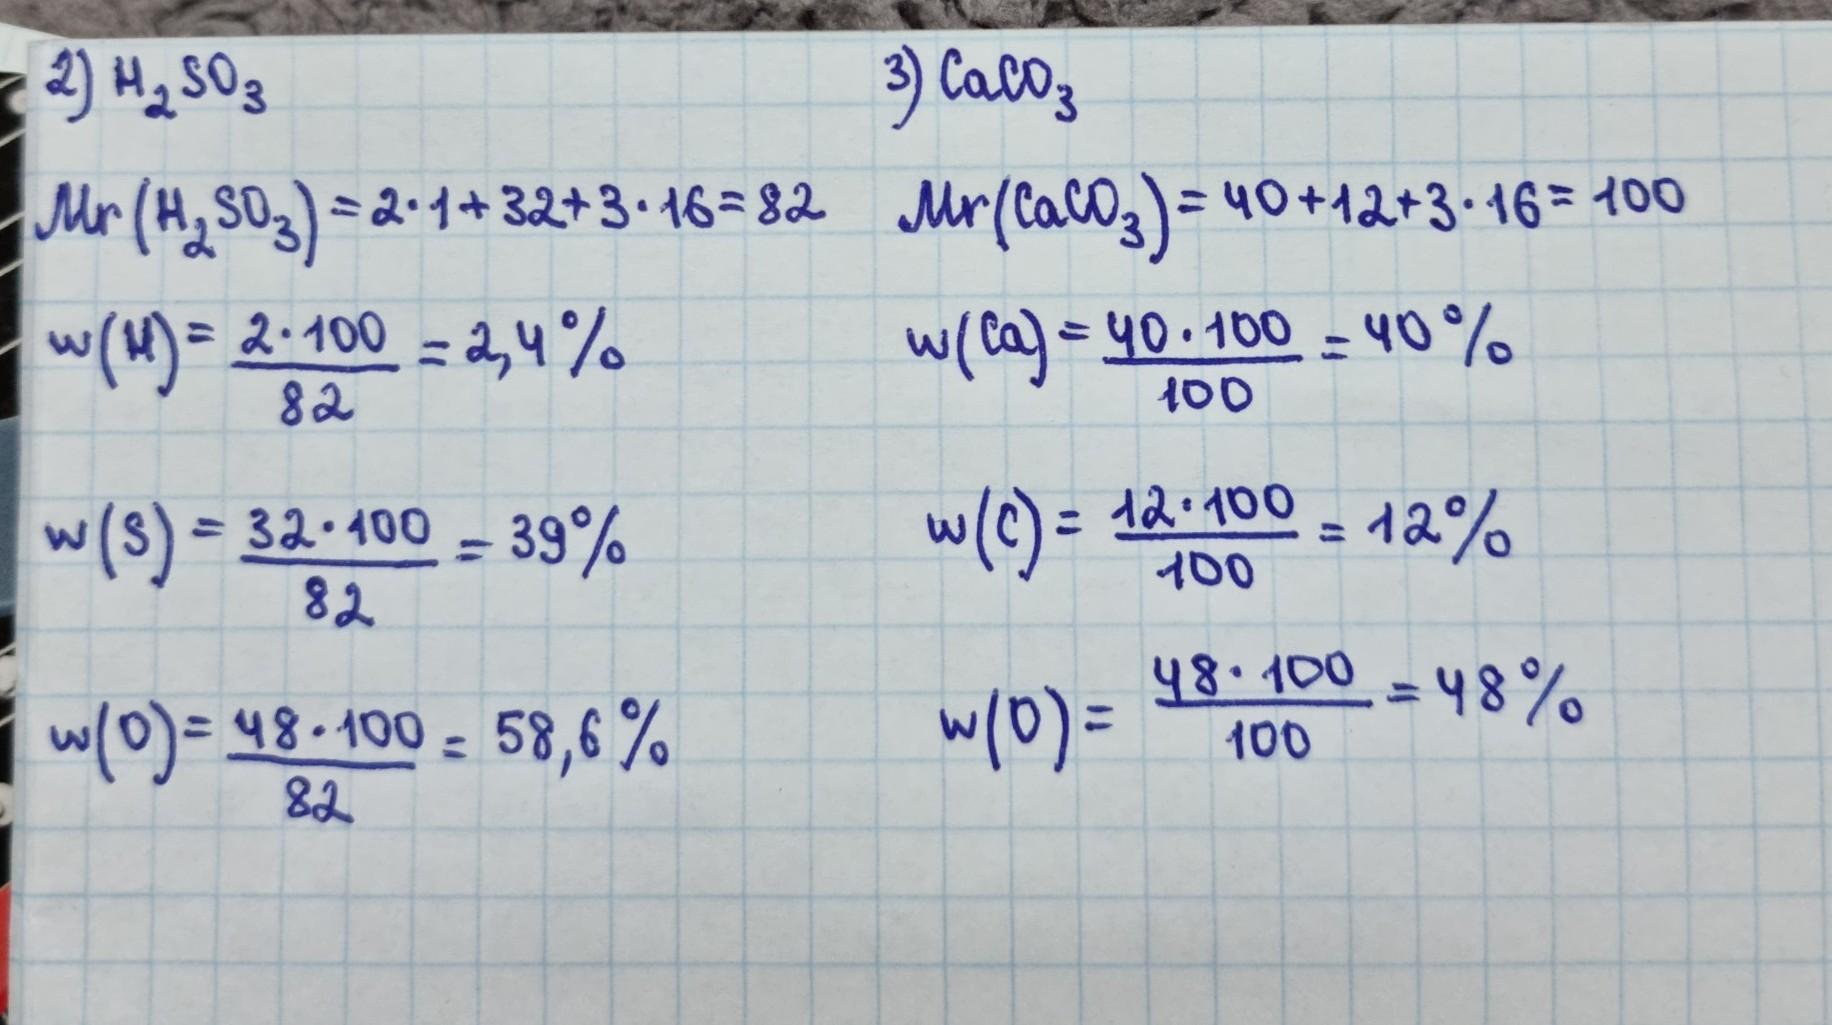 2) H₂SO₃
Mr(H₂SO₃) = 2·1+32+3·16=82
w(H) = 2·100/82 = 2,4%
w(S) = 32·100/82 = 39%
w(O) = 48·100/82 = 58,6%
3) CaCO₃
Mr(CaCO₃) = 40+12+3·16= 100
w(Ca) = 40·100/100 = 40%
w(C) = 12·100/100 = 12%
w(O) = 48·100/100 = 48%